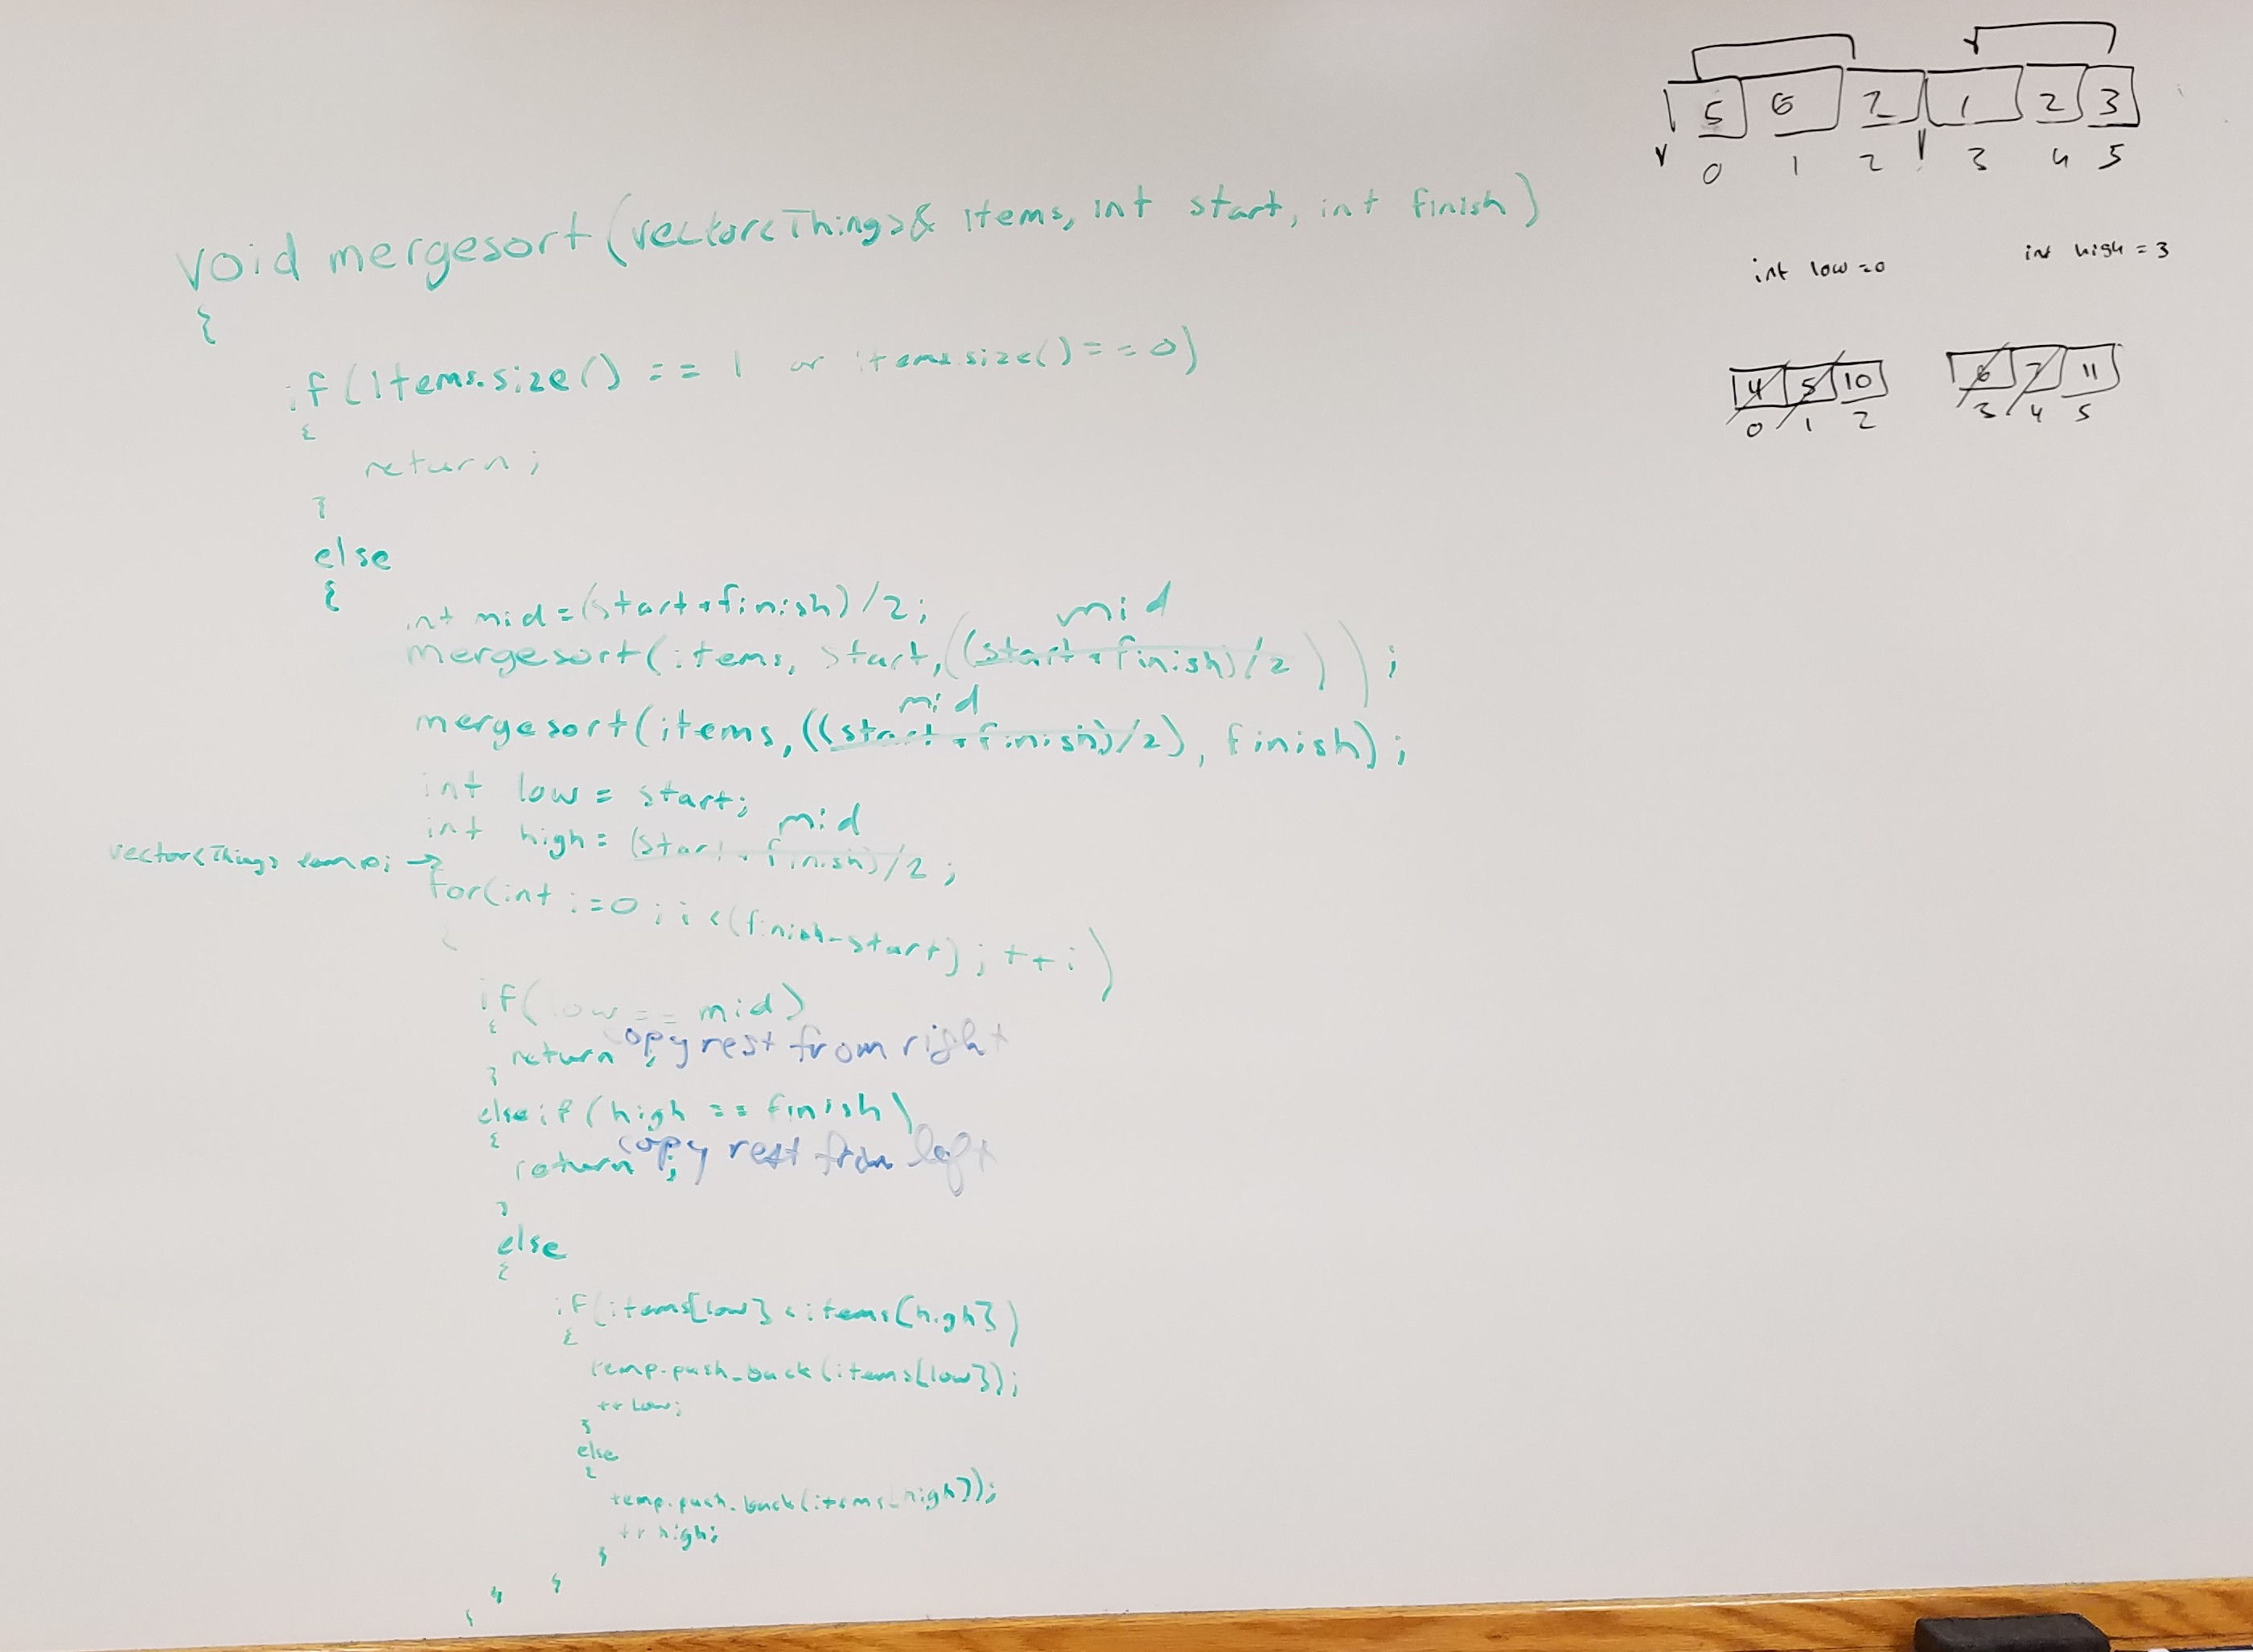 void mergesort(vector<Thing>& items, int start, int finish)
{
if(items.size() == 1 or items.size() == 0)
{
return;
}
else
{
int mid=(start+finish)/2;
mid
mergesort(items, start,((start+finish)/2));
mid
mergesort(items,((start+finish)/2), finish);
int low = start;
mid
int high = (start+finish)/2;
vector<Thing> temp; →
for(int i=0; i<(finish-start); ++i)
{
if(low == mid)
{
return; copy rest from right
}
else if(high == finish)
{
return; copy rest from left
}
else
{
if(items[low] < items[high])
{
temp.push_back(items[low]);
++low;
}
else
{
temp.push_back(items[high]);
++high;
}
}
}
}
5 6 2 1 2 3
0 1 2 3 4 5
int low=0 int high=3
4 5 10 6 7 11
0 1 2 3 4 5